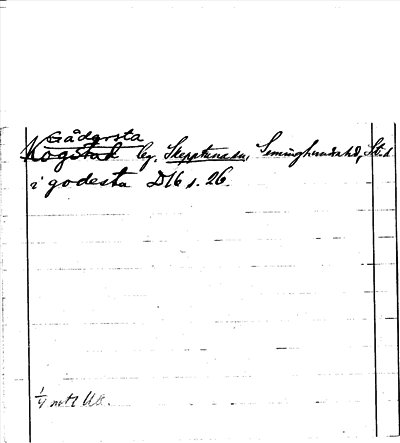 Gådersta
Kogstad by, Skepptuna sn, Seminghundra hd, St. l
i godesta D16 s. 26.
1/4 mtl Ub.